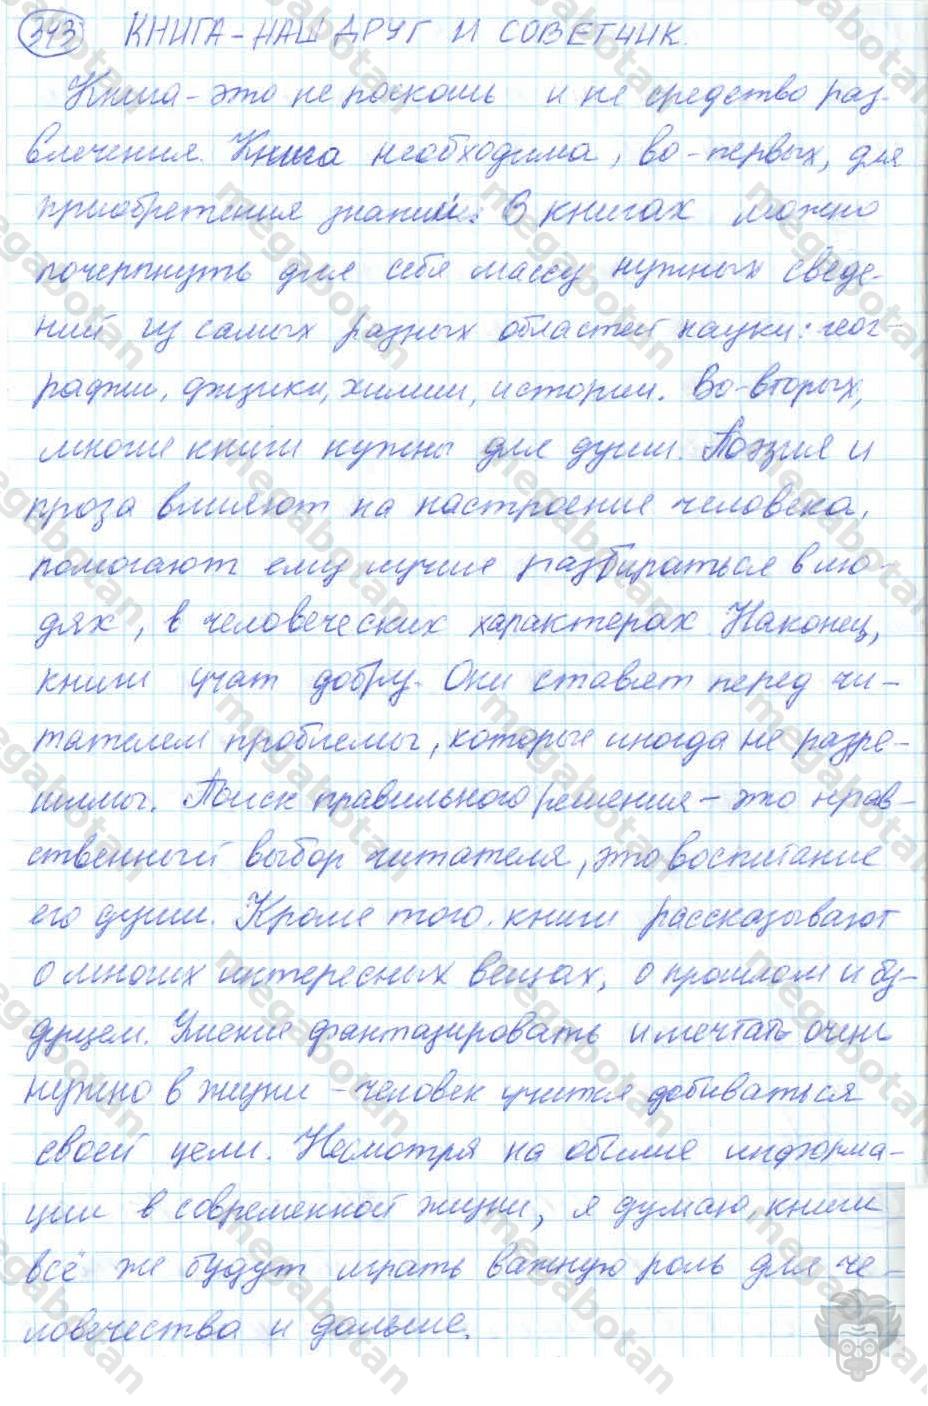 343 КНИГА - НАШ ДРУГ И СОВЕТЧИК.
Книга - это не роскошь и не средство раз-
влечения. Книга необходима, во-первых, для
приобретения знаний. В книгах можно
почерпнуть для себя массу нужных сведе-
ний из самых разных областей науки: геог-
рафии, физики, химии, истории. Во-вторых,
многие книги нужны для души. Поэзия и
проза влияют на настроение человека,
помогают ему лучше разбираться в лю-
дях, в человеческих характерах. Наконец,
книги учат добру. Они ставят перед чи-
тателем проблемы, которые иногда не разре-
шимы. Поиск правильного решения - это нрав-
ственный выбор читателя, это воспитание
его души. Кроме того, книги рассказывают
о многих интересных вещах, о прошлом и бу-
дущем. Умение фантазировать и мечтать очень
нужно в жизни - человек учится добиваться
своей цели. Несмотря на обилие информа-
ции в современной жизни, я думаю, книги
всё же будут играть важную роль для че-
ловечества и дальше.
megabotan